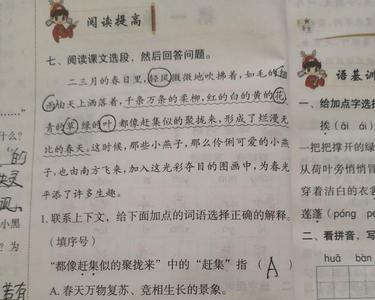 阅读提高
七、阅读课文选段，然后回答问题。
二三月的春日里，轻风微微地吹拂着，如毛的细
雨由天上洒落着，千条万条的柔柳，红的白的黄的花，
青的草，绿的叶，都像赶集似的聚拢来，形成了烂漫无
比的春天。这时候，那些小燕子，那么伶俐可爱的小燕
子，也由南方飞来，加入这光彩夺目的图画中，为春光
平添了许多生趣。
1.联系上下文，给下面加点的词语选择正确的解释。
（填序号）
“都像赶集似的聚拢来”中的“赶集”指（ A ）
A.春天万物复苏、竞相生长的景象。
什么？
“的
小黑
？为
语基训
一、给加点字选择
挨（āi ái）
一把把撑开的绿
从荷叶旁悄悄冒
穿着洁白的衣裳
莲蓬（péng pé
二、看拼音，写
huā bàn